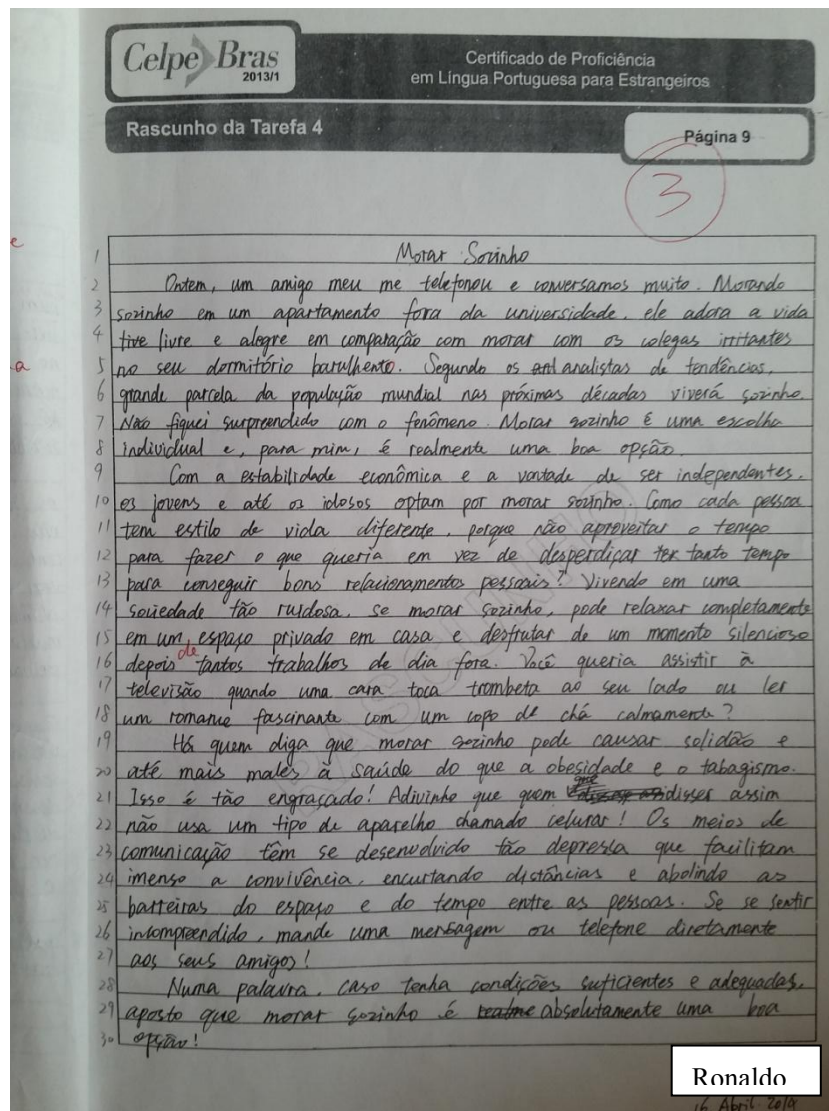 Celpe Bras
2013/1
Certificado de Proficiência
em Língua Portuguesa para Estrangeiros
Rascunho da Tarefa 4
Página 9
3
e
a
1 Morar Sozinho
2 Ontem, um amigo meu me telefonou e conversamos muito. Morando
3 sozinho em um apartamento fora da universidade, ele adora a vida
4 live livre e alegre em comparação com morar com os colegas irritantes
5 no seu dormitório barulhento. Segundo os anl analistas de tendências,
6 grande parcela da população mundial nas próximas décadas viverá sozinho.
7 Não fiquei surpreendido com o fenômeno. Morar sozinho é uma escolha
8 individual e, para mim, é realmente uma boa opção.
9 Com a estabilidade econômica e a vontade de ser independentes,
10 os jovens e até os idosos optam por morar sozinho. Como cada pessoa
11 tem estilo de vida diferente, porque não aproveitar o tempo
12 para fazer o que queria em vez de desperdiçar ter tanto tempo
13 para conseguir bons relacionamentos pessoais? Vivendo em uma
14 sociedade tão ruidosa, se morar sozinho, pode relaxar completamente
15 em um espaço privado em casa e desfrutar de um momento silencioso
16 depois de tantos trabalhos de dia fora. Você queria assistir à
17 televisão quando uma cara toca trombeta ao seu lado ou ler
18 um romance fascinante com um copo de chá calmamente?
19 Há quem diga que morar sozinho pode causar solidão e
20 até mais males à saúde do que a obesidade e o tabagismo.
21 Isso é tão engraçado! Adivinho que quem que disser assim
22 não usa um tipo de aparelho chamado celurar! Os meios de
23 comunicação têm se desenvolvido tão depressa que facilitam
24 imenso a convivência, encurtando distâncias e abolindo as
25 barreiras do espaço e do tempo entre as pessoas. Se se sentir
26 incompreendido, mande uma mensagem ou telefone diretamente
27 aos seus amigos!
28 Numa palavra, caso tenha condições suficientes e adequadas,
29 aposto que morar sozinho é absolutamente uma boa
30 opção!
RASCUNHO
Ronaldo
16 Abril